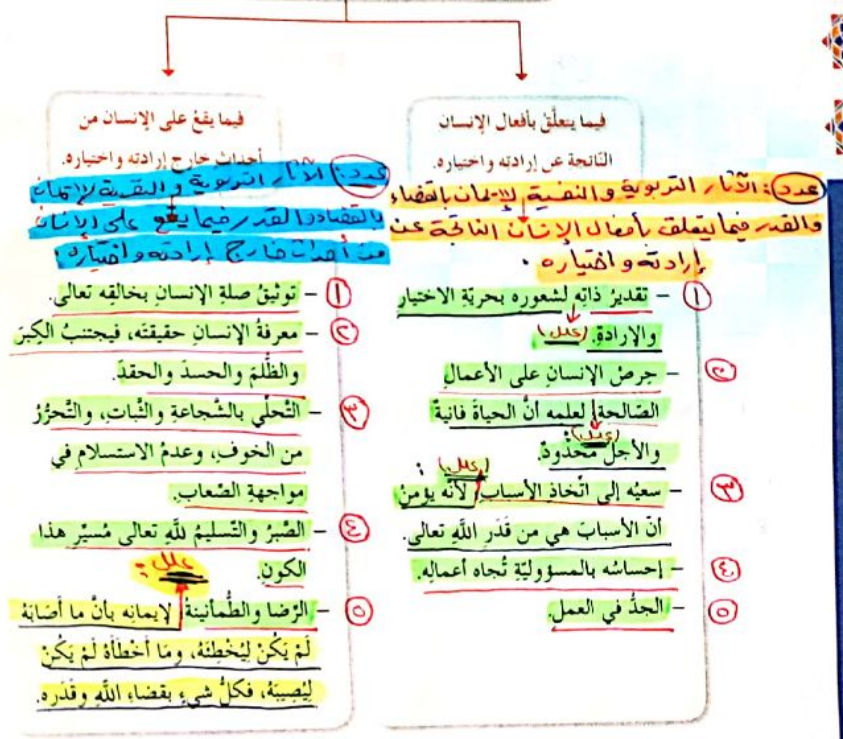 فيما يتعلَّقُ بأفعال الإنسان
النّاتجة عن إرادته واختياره.
عدد: الآثار التربوية والنفسية للإيمان بالقضاء
والقدر فيما يتعلق بأفعال الإنسان الناتجة عن
إرادته واختياره.
١ – تقديرُ ذاتِهِ لشعورِه بحريّةِ الاختيارِ
والإرادةِ. (علل)
٢ – حِرصُ الإنسانِ على الأعمالِ
الصّالحةِ لعلمِه أنَّ الحياةَ فانيةٌ
(علل)
والأجلَ مَحْدُودٌ.
(علل):
٣ – سعيُه إلى اتّخاذِ الأسبابِ لأنَّه يؤمنُ
أنّ الأسبابَ هي من قَدَرِ اللَّهِ تعالى.
٤ – إحساسُه بالمسؤوليّةِ تُجاه أعمالِه.
٥ – الجدُّ في العمل.
فيما يقعُ على الإنسان من
أحداث خارج إرادته واختياره.
عدد: الآثار التربوية والنفسية للإيمان
بالقضاء والقدر فيما يقع على الإنسان
من أحداث خارج إرادته واختياره:
١ – توثيقُ صلةِ الإنسانِ بخالقِه تعالى.
٢ – معرفةُ الإنسانِ حقيقتَه، فيجتنبُ الكِبرَ
والظّلمَ والحسدَ والحقدَ.
٣ – التّحلّي بالشّجاعةِ والثّباتِ، والتّحرّرُ
من الخوفِ، وعدمُ الاستسلامِ في
مواجهةِ الصّعابِ.
٤ – الصّبرُ والتّسليمُ للَّهِ تعالى مُسيّرِ هذا
الكونِ.
علل:
٥ – الرّضا والطّمأنينةُ لإيمانِه بأنَّ ما أصَابَهُ
لَمْ يَكُنْ لِيُخْطِئَهُ، ومَا أَخْطَأَهُ لَمْ يَكُنْ
لِيُصِيبَهُ، فكلُّ شيءٍ بقضاءِ اللَّهِ وقَدَرِه.